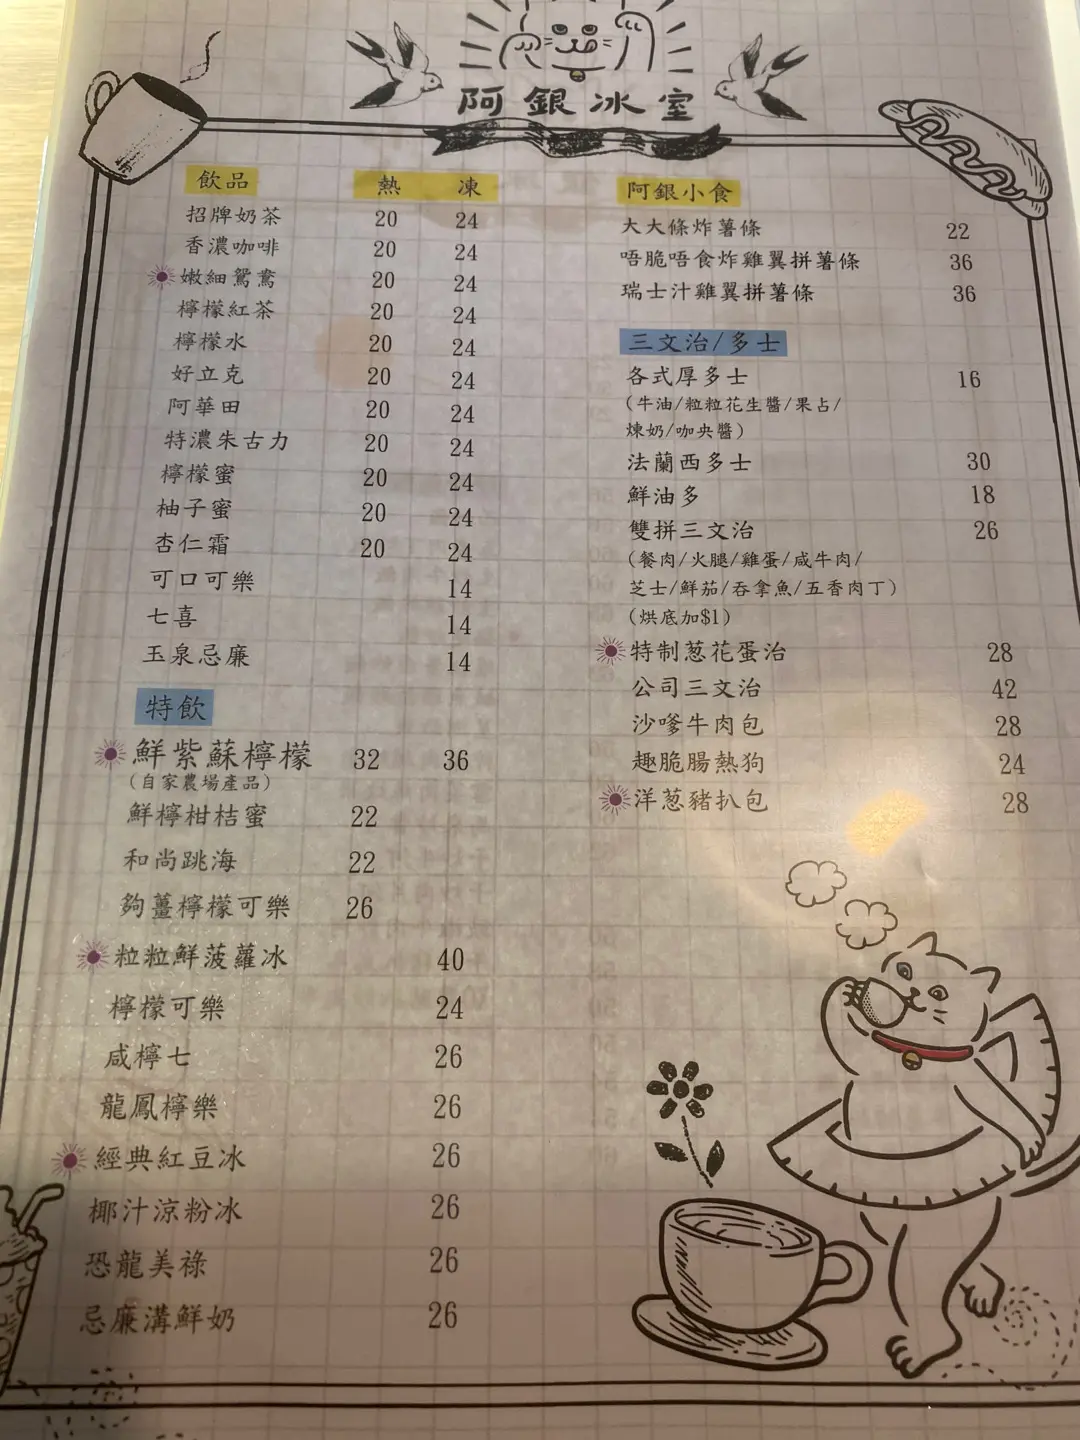 阿銀冰室
飲品 熱 凍
招牌奶茶 20 24
香濃咖啡 20 24
嫩細鴛鴦 20 24
檸檬紅茶 20 24
檸檬水 20 24
好立克 20 24
阿華田 20 24
特濃朱古力 20 24
檸檬蜜 20 24
柚子蜜 20 24
杏仁霜 20 24
可口可樂 14
七喜 14
玉泉忌廉 14
特飲
鮮紫蘇檸檬 32 36
（自家農場產品）
鮮檸柑桔蜜 22
和尚跳海 22
夠薑檸檬可樂 26
粒粒鮮菠蘿冰 40
檸檬可樂 24
咸檸七 26
龍鳳檸樂 26
經典紅豆冰 26
椰汁涼粉冰 26
恐龍美祿 26
忌廉溝鮮奶 26
阿銀小食
大大條炸薯條 22
唔脆唔食炸雞翼拼薯條 36
瑞士汁雞翼拼薯條 36
三文治/多士
各式厚多士 16
（牛油/粒粒花生醬/果占/
煉奶/咖央醬）
法蘭西多士 30
鮮油多 18
雙拼三文治 26
（餐肉/火腿/雞蛋/咸牛肉/
芝士/鮮茄/吞拿魚/五香肉丁）
（烘底加$1）
特制葱花蛋治 28
公司三文治 42
沙嗲牛肉包 28
趣脆腸熱狗 24
洋葱豬扒包 28